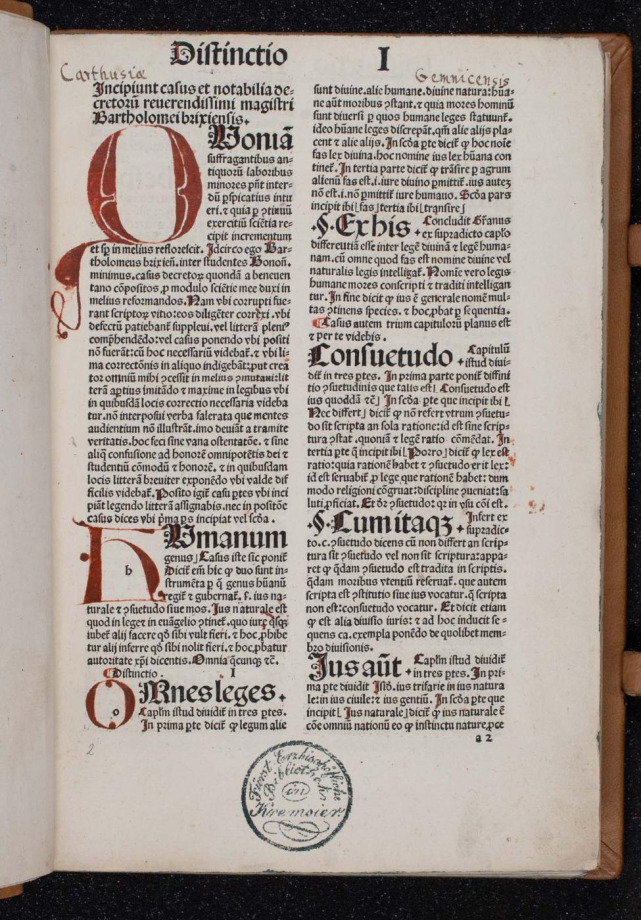 Distinctio I
Carthusiæ Gemnicensis
Incipiunt casus et notabilia de-
cretoꝝ reuerendissimi magistri
Bartholomei brixiensis.
QUoniã
suffragantibus an-
tiquorũ laboribus
minores pñt inter-
dũ pspicatius intu
eri. ⁊ quia p ꝯtinuũ
exercitiũ sciẽtia re-
cipit incrementum
et sp in melius reflorescit. Idcirco ego Bar-
tholomeus brixieñ. inter studentes Bonoñ.
minimus. casus decretoꝝ quondã a beneuen
tano cõpositos, ꝓ modulo sciẽtie mee duxi in
melius reformandos. Nam vbi corrupti fue-
rant scriptoꝝ vitio: eos diligẽter correxi. vbi
defectũ patiebant suppleui. vel litterã pleniꝰ
comphẽdẽdo: vel casus ponendo vbi positi
nõ fuerãt: cũ hoc necessariũ videbat. ⁊ vbi li-
ma correctõnis in aliquo indigebãt: put crea
tor omniũ mihi ꝯcessit in melius ꝯmutaui: lit
terã aptius imitãdo ⁊ maxime in legibus vbi
in quibusdã locis correctio necessaria videba
tur. nõ interposui verba falerata que mentes
audientium nõ illustrãt. imo deuiãt a tramite
veritatis. hoc feci sine vana ostentatõe. ⁊ sine
aliq̃ confusione ad honorẽ omnipotẽtis dei ⁊
studentiũ cõmodũ ⁊ honorẽ. ⁊ in quibusdam
locis litterã breuiter exponẽdo vbi valde dif
ficilis videbat. Posito igit casu ptes vbi inci
piãt legendo litterã assignabis. nec in positõe
casus dices vbi pma ps incipiat vel scða.
HUmanum
genus] Casus iste sic ponit
h Dicit eñ hic ꝙ duo sunt in-
strumẽta p q̃ genus hũanũ
regit ⁊ gubernat. s. ius na-
turale ⁊ ꝯsuetudo siue mos. Ius naturale est
quod in lege ⁊ in euãgelio ꝯtinet. quo iure q̃sq̃
iubet alij facere qd sibi vult fieri. ⁊ hoc ꝓhibe
tur alij inferre qd sibi nolit fieri. ⁊ hoc ꝓbatur
autoritate xp̃i dicentis. Omnia q̃cunq̃ ⁊c̃.
Distinctio. I
OMnes leges.
o Caplm istud diuidit in tres ptes.
In prima pte dicit ꝙ legum alie
2
sunt diuine. alie humane. diuine natura: hũa-
ne aũt moribus ꝯstant. ⁊ quia mores hominũ
sunt diuersi p quos humane leges statuunt.
ideo hũane leges discrepãt. qm̃ alie alijs pla-
cent ⁊ alie alijs. In scða pte dicit ꝙ hoc noĩe
fas lex diuina. hoc nomine ius lex hũana con
tinet. In tertia parte dicit ꝙ trãsire p agrum
alienũ fas est. i. iure diuino pmittit. ius autez
nõ est. i. nõ pmittit iure humano. Scða pars
incipit ibi [ fas ] tertia ibi [ transire ]
§. Ex his Concludit Gr̃anus
. ex supradicto caplo
differentiã esse inter legẽ diuinã ⁊ legẽ huma-
nam. cũ omne quod fas est nomine diuine vel
naturalis legis intelligat. Nomie vero legis
humane mores conscripti ⁊ traditi intelligan
tur. In fine dicit ꝙ ius ẽ generale nomẽ mul-
tas ꝯtinens species. ⁊ hoc ꝓbat p sequentia.
Casus autem trium capitulorũ planus est
⁊ per te videbis.
Consuetudo. Capitulũ
istud diui-
dit in tres ptes. In prima parte ponit diffini
tio ꝯsuetudinis que talis est [ Consuetudo est
ius quoddã ⁊c̃ ] In scða pte que incipit ibi [
Nec differt ] dicit ꝙ nõ refert vtrum ꝯsuetu-
do sit scripta an sola ratione: id est sine scrip-
tura ꝯstat. quoniã ⁊ legẽ ratio cõmẽdat. In-
tertia pte q̃ incipit ibi [ Porro ] dicit ꝙ lex est
ratio: quia rationẽ habet ⁊ ꝯsuetudo erit lex:
id est seruabit, ꝓ lege que rationẽ habet: dum
modo religioni cõgruat: discipline ꝯueniat: sa
luti, ꝓficiat. Et dr̃ ꝯsuetudo: qz in vsu cõi est.
§. Cum itaqz Infert ex
. supradic-
to. c. ꝯsuetudo dicens cũ non differt an scrip-
tura sit ꝯsuetudo vel non sit scriptura: appa-
ret ꝙ q̃dam ꝯsuetudo est tradita in scriptis.
q̃dam moribus vtentiũ reseruat. que autem
scripta est ꝯstitutio siue ius vocatur. q̃ scripta
non est: consuetudo vocatur. Et dicit etiam
ꝙ est alia diuisio iuris: ⁊ ad hoc inducit se-
quens ca. exempla ponẽdo de quolibet mem-
bro diuisionis.
Jus aũt. Caplm istud diuidit
. in tres ptes. In pri-
ma pte diuidit Isid. ius trifarie in ius natura
le: in ius ciuile: ⁊ ius gentiũ. In scða pte que
incipit [ Ius naturale ] dicit ꝙ ius naturale ẽ
cõe omniũ nationũ eo ꝙ instinctu nature, ꝓce
a 2
Fürst Erzbischöfliche
Bibliothek
in
Kremsier.